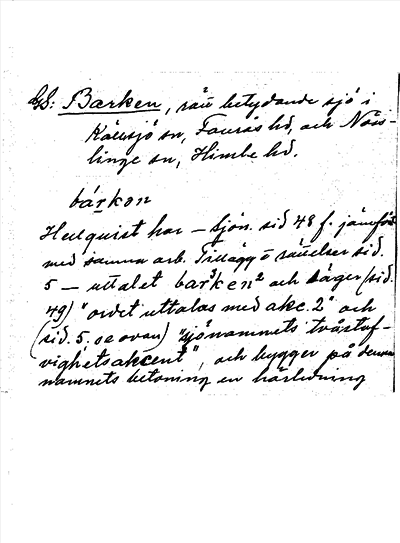 GS: Barken, rätt betydande sjö i
Källsjö sn, Faurås hd, och Nöss-
linge sn, Himle hd.
bárkon
Hellquist har – Sjön. sid 48 f. jämförd
med samma arb. Tillägg o rättelser sid.
5 – uttalet bar³ken² och säger (sid.
49) "ordet uttalas med akc. 2" och
(sid. 5, se ovan) "sjönamnets tvåstaf-
vighetsakcent", och bygger på denna
namnets betoning en härledning